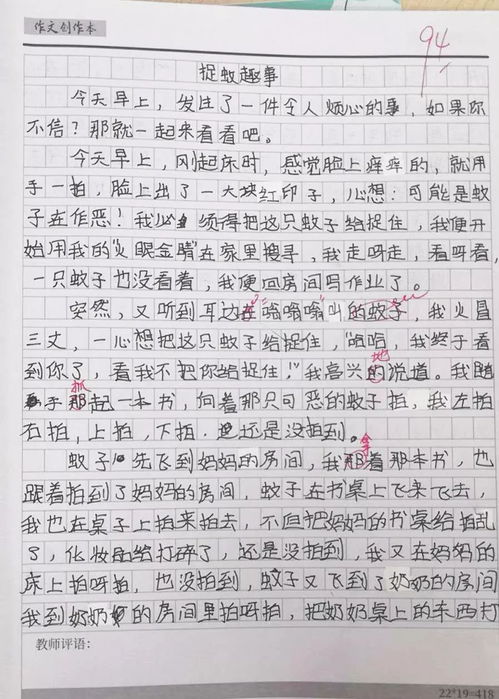 作文创作本
94
捉蚊趣事
今天早上，发生了一件令人烦心的事，如果你
不信？那就一起来看看吧。
今天早上，刚起床时，感觉脸上痒痒的，就用
手一拍，脸上出了一大块红印子，心想：可能是蚊
子在作恶！我必须得把这只蚊子给捉住，我便开
始用我的"火眼金睛"在家里搜寻，我走呀走，看呀看，
一只蚊子也没看着，我便回房间写作业了。
突然，又听到耳边在"嗡嗡嗡"叫的蚊子，我火冒
三丈，一心想把这只蚊子给捉住，"哈哈，我终于看
地
到你了，看我不把你给捉住！"我高兴的说道。我随
抓
手那起一本书，向着那只可恶的蚊子拍，我左拍
右拍，上拍，下拍，还是没拍到。
拿
蚊子先飞到妈妈的房间，我那着那本书，也
跟着拍到了妈妈的房间，蚊子在书桌上飞来飞去，
我也在桌子上拍来拍去，不但把妈妈的书桌给拍乱
了，化妆品给打碎了，还是没拍到，我又在妈妈的
床上拍呀拍，也没拍到，蚊子又飞到了奶奶的房间
我到奶奶的房间里拍呀拍，把奶奶桌上的东西打
教师评语：
22*19=418